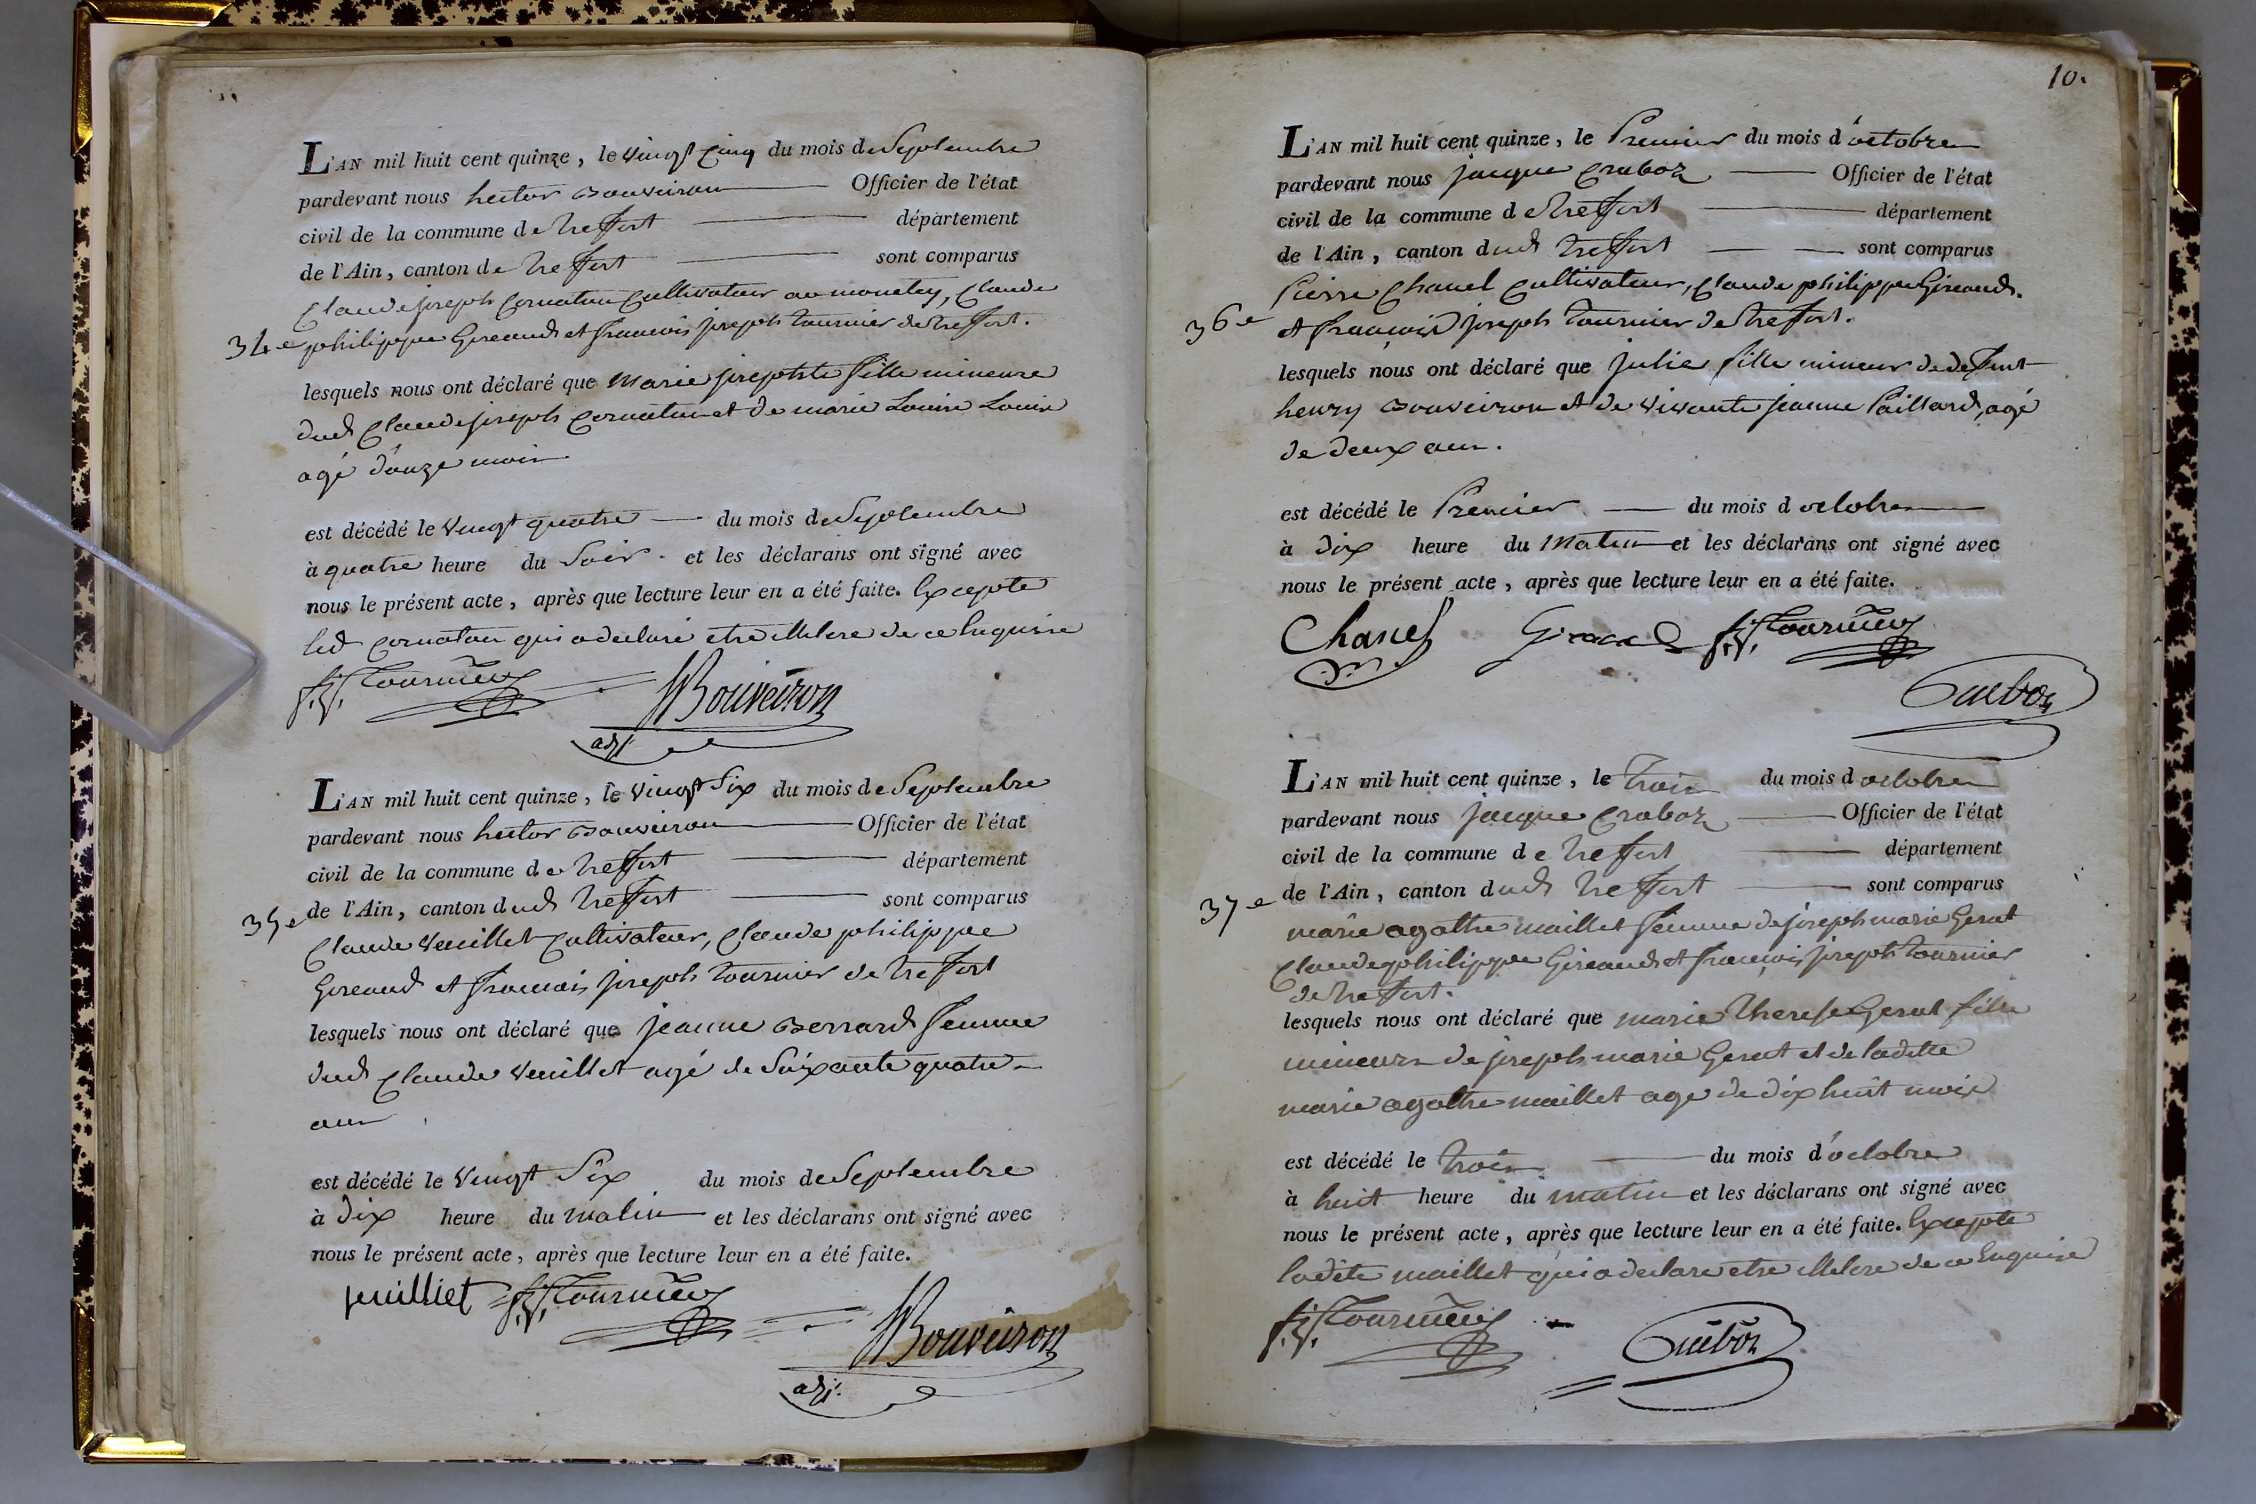 L'AN mil huit cent quinze, le vingt cinq du mois de Septembre
pardevant nous hector Bouveiron Officier de l'état
civil de la commune de treffort département
de l'Ain, canton de treffort sont comparus
Claude joseph Cornaton Cultivateur au moncley, Claude
34e philippe Gireaud et francois joseph tournier de treffort.
lesquels nous ont déclaré que Marie josephte fille mineure
dud Claude joseph Cornaton et de marie Louise Louise
agé d'onze mois
est décédé le vingt quatre du mois de Septembre
à quatre heure du Soir. et les déclarans ont signé avec
nous le présent acte, après que lecture leur en a été faite. Excepte
led Cornaton qui a declaré etre illetere de ce Enquise
f. j. Tournier HBouveiron
adj.
L'AN mil huit cent quinze, le vingt Six du mois de Septembre
pardevant nous hector Bouveiron Officier de l'état
civil de la commune de treffort département
35e de l'Ain, canton dud treffort sont comparus
Claude Veuillet Cultivateur, Claude philippe
Gireaud et francois joseph tournier de treffort
lesquels nous ont déclaré que jeanne Berrard femme
dud Claude Veuillet agé de Soixante quatre
ans
est décédé le vingt Six du mois de Septembre
à dix heure du matin et les déclarans ont signé avec
nous le présent acte, après que lecture leur en a été faite.
vuilliet f. j. Tournier
HBouveiron
adj.
10.
L'AN mil huit cent quinze, le Premier du mois d'octobre
pardevant nous jacque Craboz Officier de l'état
civil de la commune de treffort département
de l'Ain, canton dud treffort sont comparus
Pierre Chanel Cultivateur, Claude philippe Gireaud.
36e et francois joseph tournier de treffort.
lesquels nous ont déclaré que julie fille mineur de defunt
henry Bouveiron et de vivante jeanne Paillard, agé
de deux ans.
est décédé le Premier du mois d octobre
à dix heure du Matin et les déclarans ont signé avec
nous le présent acte, après que lecture leur en a été faite.
Chanel Gireaud f. j. Tournier
Craboz
L'AN mil huit cent quinze, le trois du mois d octobre
pardevant nous jacque Craboz Officier de l'état
civil de la commune de treffort département
37e de l'Ain, canton dud treffort sont comparus
marie agathe maillet femme de joseph marie Gerut
Claude philippe Gireaud et francois joseph tournier
de treffort.
lesquels nous ont déclaré que marie therese Gerut fille
mineure de joseph marie Gerut et de ladette
marie agathe maillet age de dix huit mois
est décédé le trois du mois d'octobre
à huit heure du matin et les déclarans ont signé avec
nous le présent acte, après que lecture leur en a été faite. Excepte
ladete maillet qui a declare etre illetere de ce Enquise
f. j. Tournier Craboz